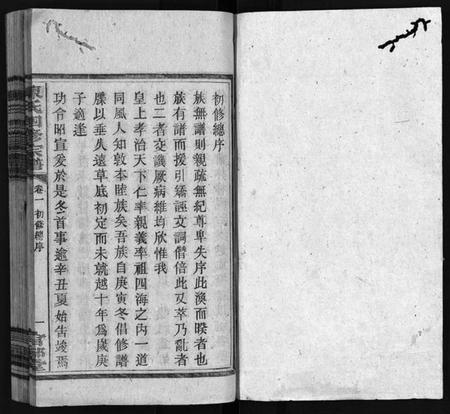 初修總序
族無譜則親疏無紀尊卑失序此渙而暌者也
族有譜而援引矯誣文詞僭倍此又萃乃亂者
也二者交譏厥病維均欣惟我
皇上孝治天下仁率親義率祖四海之內一道
同風人知敦本睦族矣吾族自庚寅冬倡修譜
牒以垂久遠草底初定而未就越十年為歲庚
子適逢
功令昭宣爰於是冬首事逾辛丑夏始告竣焉
卷一 初修總序
一